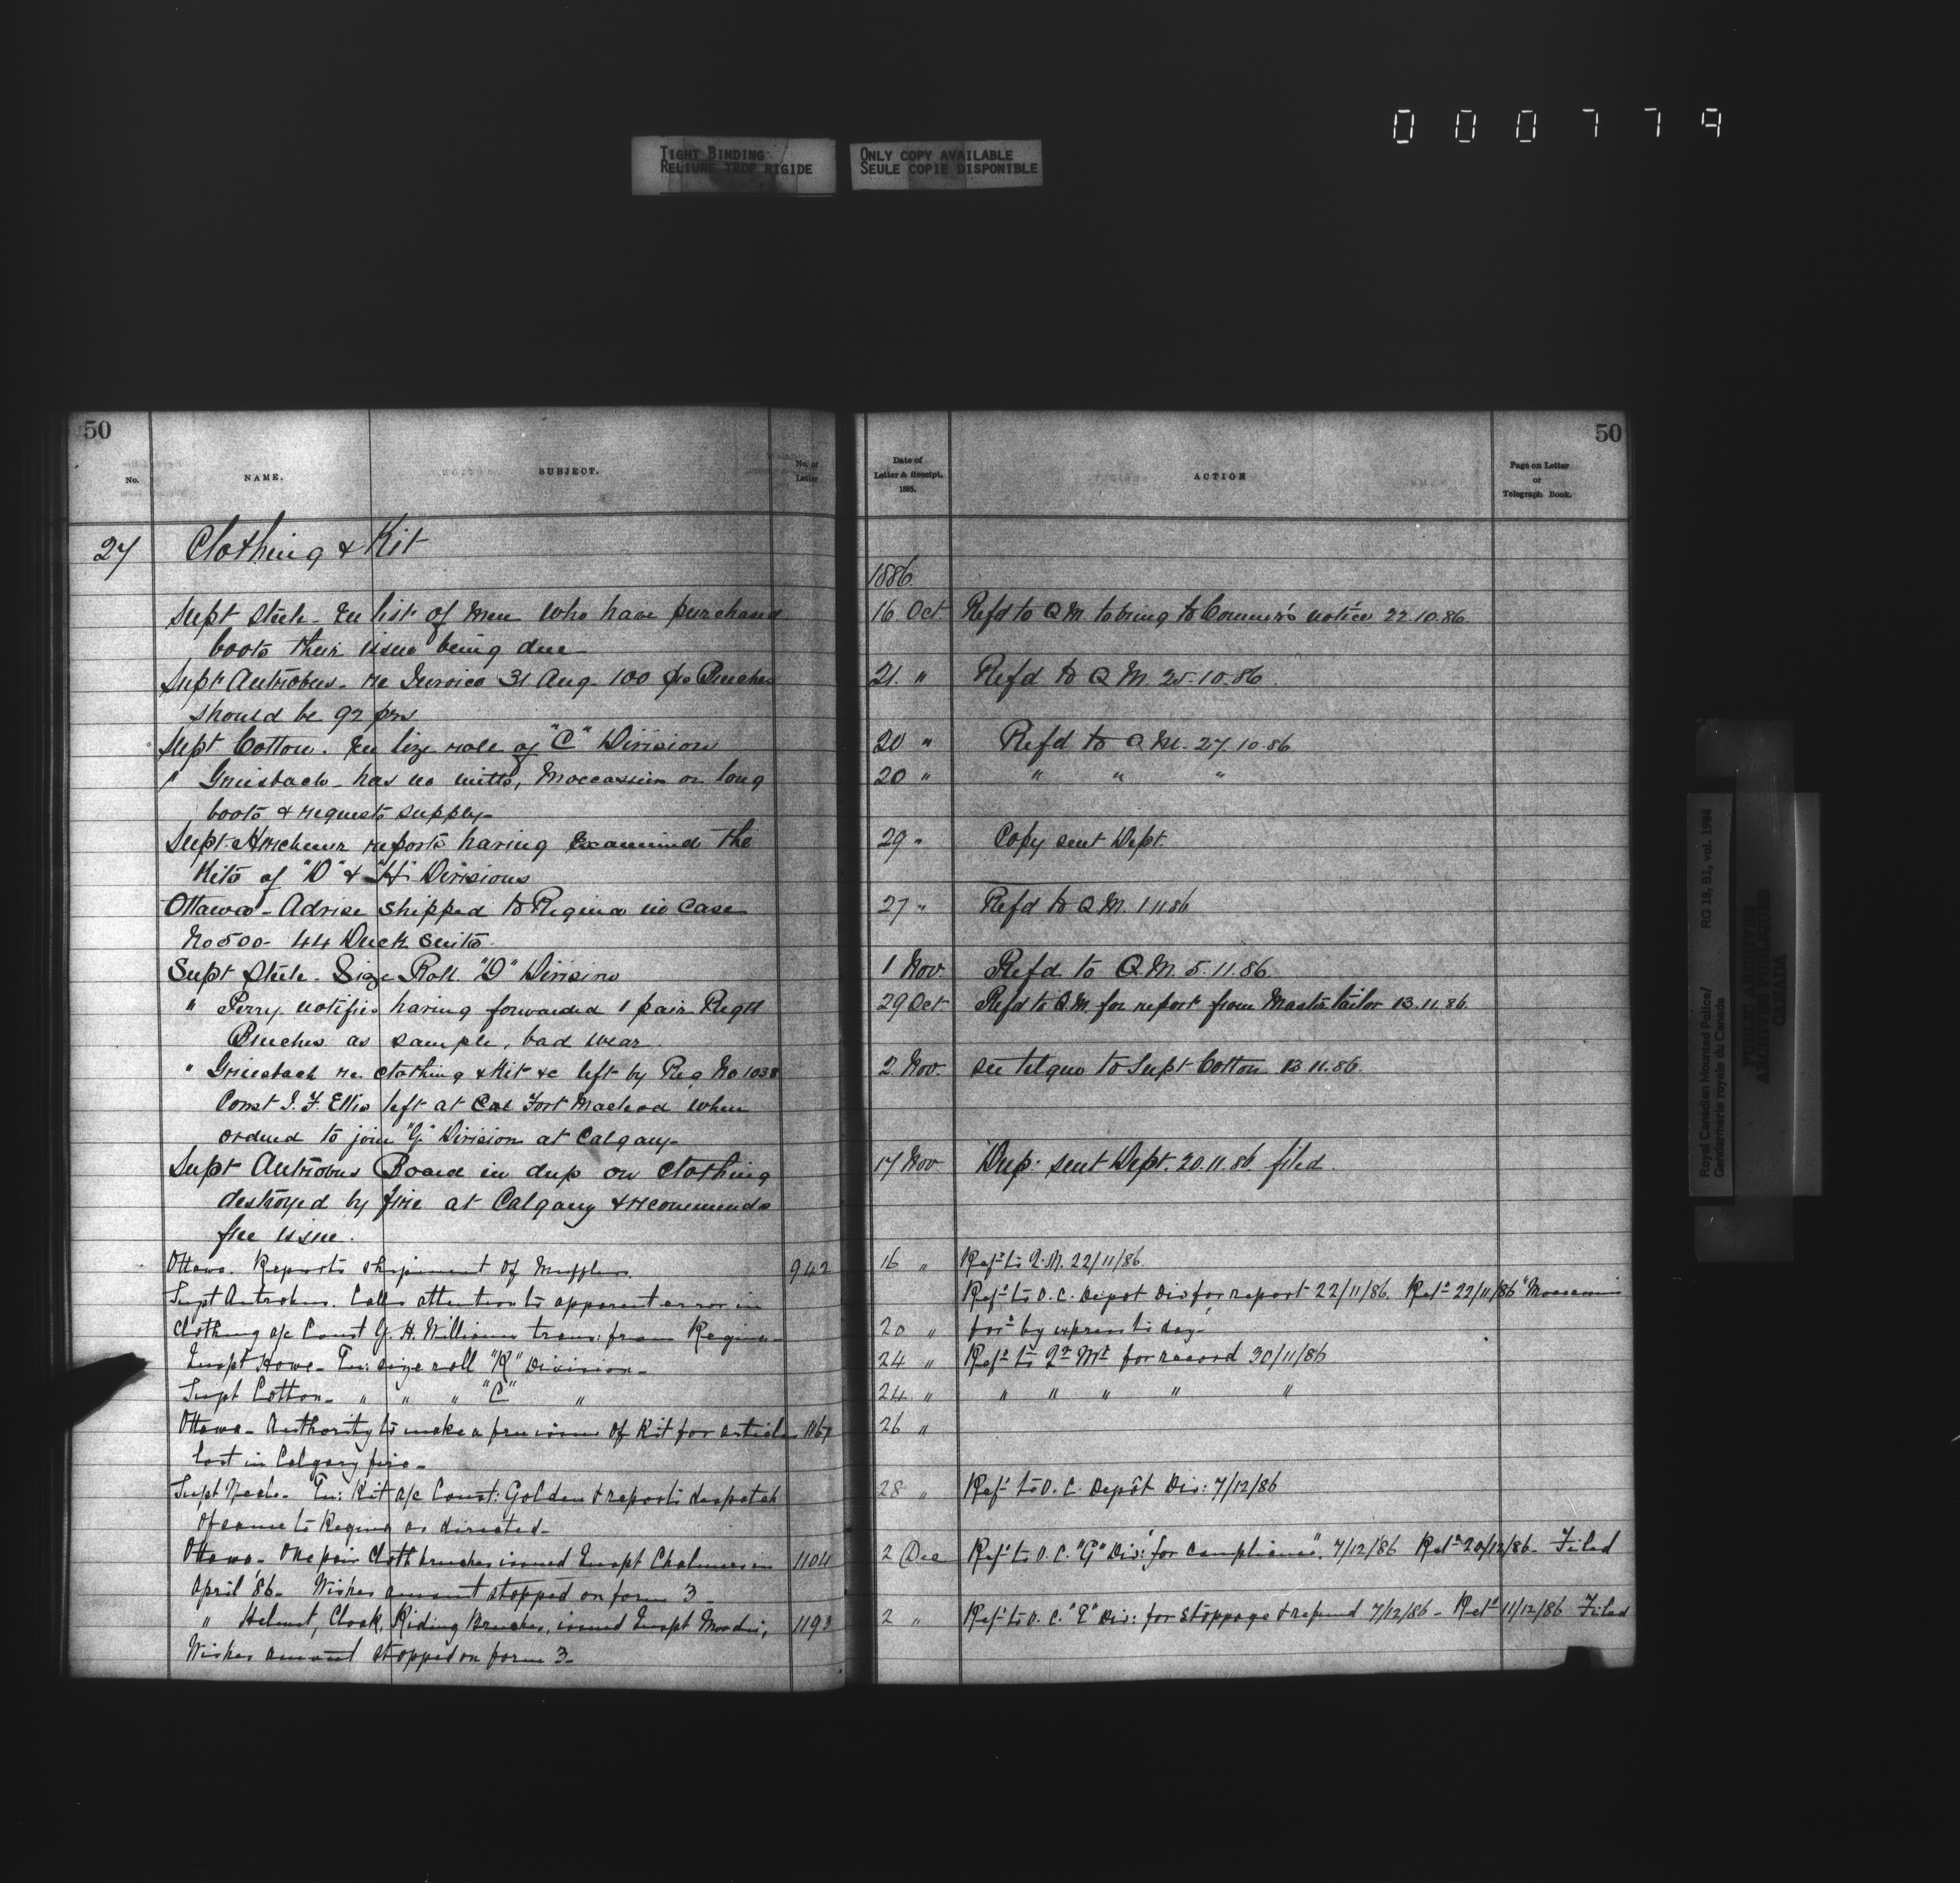 0 0 0 7 7 9
TIGHT BINDING
RELIURE TROP RIGIDE
ONLY COPY AVAILABLE
SEULE COPIE DISPONIBLE
50
No.
NAME.
SUBJECT.
No. of Letter
Date of Letter & Receipt. 1885.
ACTION
Page on Letter or Telegraph Book.
50
27 Clothing & Kit
1886
Supt Steele - Enc list of Men who have purchased 16 Oct Refd to Q M. to bring to Commr's notice 22.10.86
boots their issue being due
Supt Antrobus - re Invoice 31 Aug. 100 prs Breeches 21 " Refd to Q M. 25.10.86.
should be 92 prs
Supt Cotton. Enc size role of "C" Division 20 " Refd to Q M. 27.10.86
" Griesbach - has no mitts, Moccassins or long 20 " " " "
boots & requests supply -
Supt Herchmer reports having Examined the 29 " Copy sent Dept.
Kits of "D" & "H" Divisions
Ottawa - Advise shipped to Regina in Case 27 " Refd to Q M. 1.11.86
No 500 - 44 Duck suits -
Supt Steele - Size Roll "D" Division 1 Nov. Refd to Q.M. 5.11.86
" Perry. notifies having forwarded 1 pair Regtl 29 Oct Refd to Q.M. for report from Master tailor 13.11.86
Breeches as sample, bad wear.
" Griesbach re. clothing & Kit &c left by Reg No 1038 2 Nov. see telgm to Supt Cotton 13.11.86.
Const J. F. Ellis left at Cal Fort Macleod when
ordered to join "G" Division at Calgary -
Supt Antrobus Board in dup on clothing 17 Nov Dup. sent Dept. 20.11.86 filed.
destroyed by fire at Calgary & recommends
free issue.
Ottawa. Reports shipment of Mufflers. 942 16 " Refd to Q.M. 22/11/86.
Supt Antrobus. Calls attention to apparent error in Refd to O. C. Depot Div for report 22/11/86. Retd 22/11/86 "Moccasins
clothing a/c Const G. H. Williams trans: from Regina - 20 " by express to day"
Inspt Howe - En: size roll "K" Division - 24 " Refd to Qr Mr for record 30/11/86
Supt Cotton - " " " "C" " 24 " " " " " "
Ottawa - Authority to make a free issue of Kit for articles 1167 26 "
lost in Calgary fire -
Supt Neale - En: Kit a/c Const: Golden & reports despatch 28 " Refd to O. C. Depôt Div: 7/12/86
of same to Regina as directed -
Ottawa - One pair cloth breeches issued Inspt Chalmers in 1104 2 Dec Refd to O. C. "G" Div: "for compliance". 7/12/86 Retd 20/12/86 - Filed
April '86 - Wishes amount stopped on form 3 -
" Helmet, Cloak, Riding Breeches, issued Inspt Moodie, 1193 2 " Refd to O. C. "E" Div: for stoppage & refund 7/12/86 - Retd 11/12/86 Filed
Wishes amount stopped on form 3 -
Royal Canadian Mounted Police/ RG 18, B1, vol. 1984
Gendarmerie royale du Canada
PUBLIC ARCHIVES
ARCHIVES PUBLIQUES
CANADA